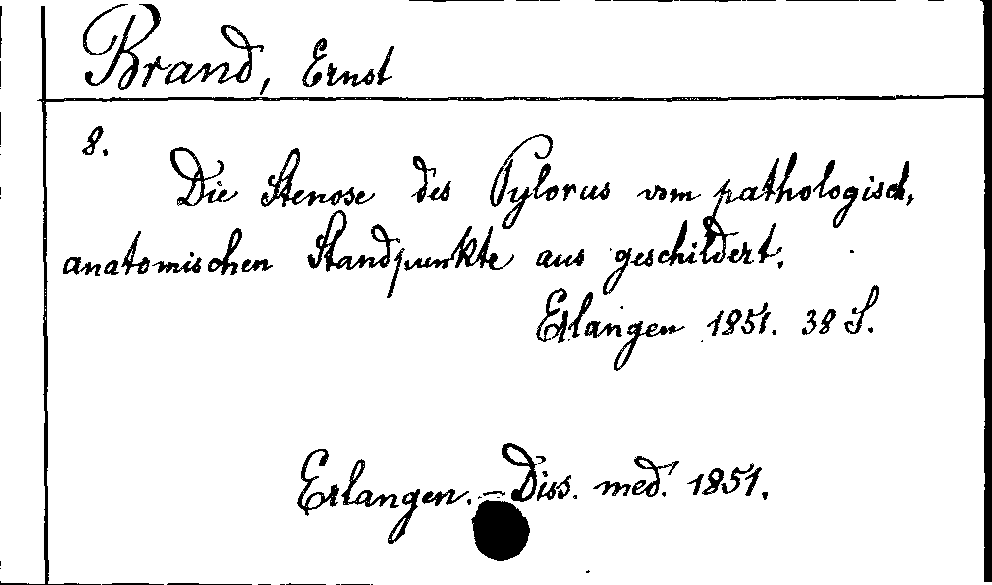 Brand, Ernst
8.
Die Stenose des Pylorus vom pathologisch,
anatomischen Standpunkte aus geschildert.
Erlangen 1851. 38 S.
Erlangen. - Diss. med. 1851.